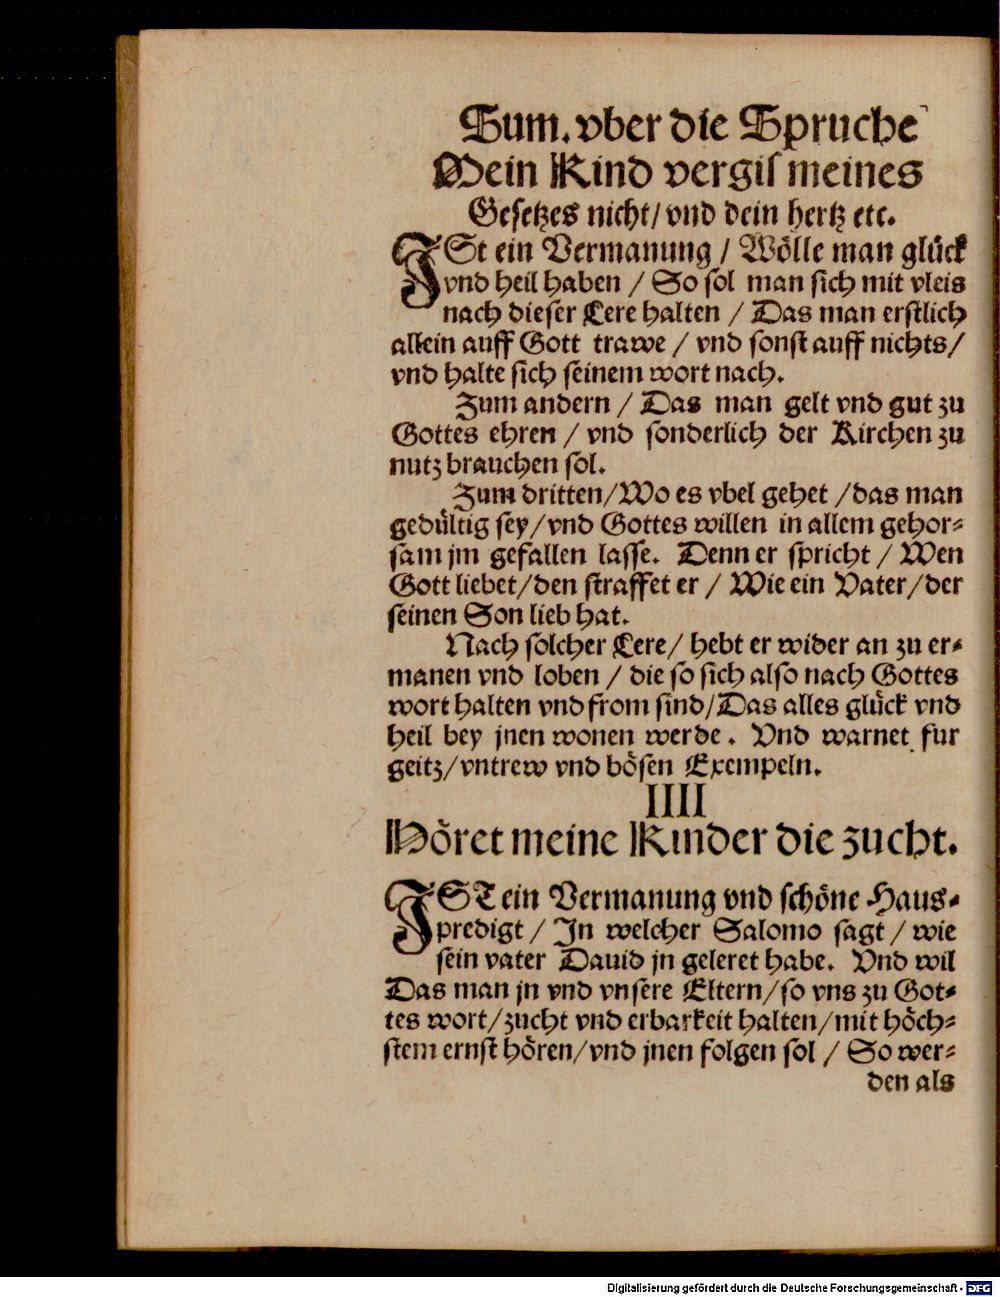 Sum. vber die Spruche
Mein Kind vergis meines
Gesetzes nicht/ vnd dein hertz etc.
ISt ein Vermanung / Wölle man glück
vnd heil haben / So sol man sich mit vleis
nach dieser Lere halten / Das man erstlich
allein auff Gott trawe / vnd sonst auff nichts/
vnd halte sich seinem wort nach.
Zum andern / Das man gelt vnd gut zu
Gottes ehren / vnd sonderlich der Kirchen zu
nutz brauchen sol.
Zum dritten/Wo es vbel gehet /das man
gedültig sey/vnd Gottes willen in allem gehor-
sam jm gefallen lasse. Denn er spricht / Wen
Gott liebet/den straffet er / Wie ein Vater/der
seinen Son lieb hat.
Nach solcher Lere/ hebt er wider an zu er-
manen vnd loben / die so sich also nach Gottes
wort halten vnd from sind/Das alles glück vnd
heil bey jnen wonen werde. Vnd warnet fur
geitz/vntrew vnd bösen Exempeln.
IIII
Höret meine Kinder die zucht.
IST ein Vermanung vnd schöne Haus-
predigt / In welcher Salomo sagt / wie
sein vater Dauid jn geleret habe. Vnd wil
Das man jn vnd vnsere Eltern/so vns zu Got-
tes wort/zucht vnd erbarkeit halten/mit höch-
stem ernst hören/vnd jnen folgen sol / So wer-
den als
Digitalisierung gefördert durch die Deutsche Forschungsgemeinschaft - DFG